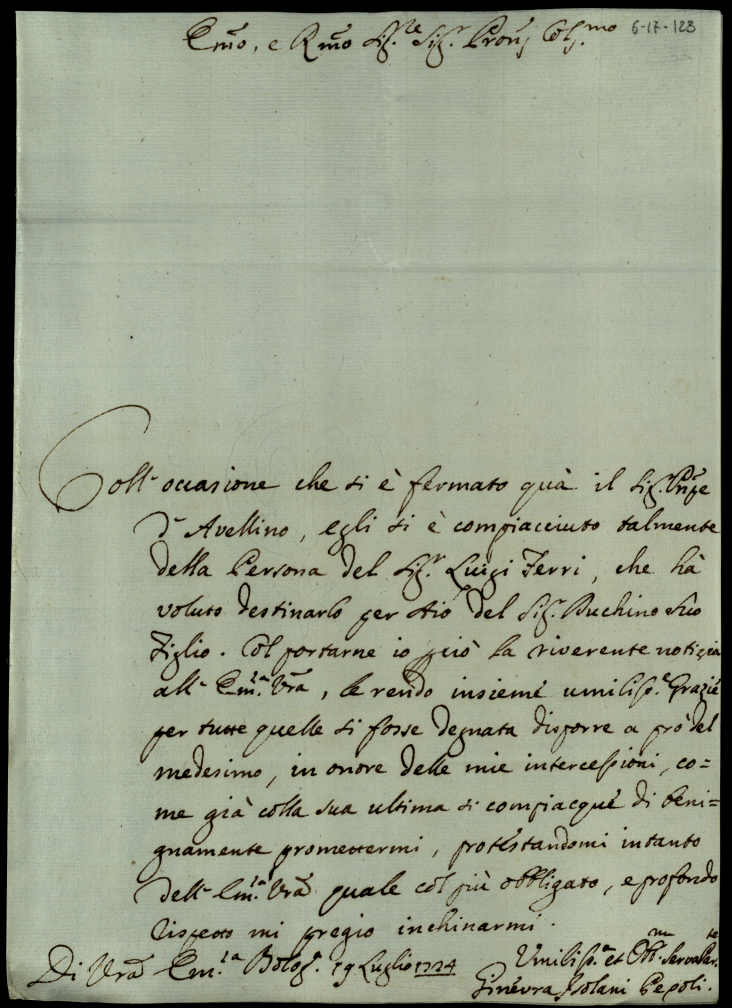 Emõ, e Rmõ Sig.re Sig.r Prõn Col.mo 6-17-123
Coll'occasione che si è fermato quà il Sig. Pñpe
d'Avellino, egli si è compiacciuto talmente
della Persona del Sig.r Luigi Ferri, che hà
voluto destinarlo per Aio del Sig. Duchino suo
Figlio. Col portarne io perciò la riverente notizia
all' Em.za Vrã, le rendo insieme umiliss.e Grazie
per tutte quelle si fosse degnata disporre a prò del
medesimo, in onore delle mie intercessioni, co=
me già colla sua ultima si compiacque di beni=
gnamente promettermi, protestandomi intanto
dell' Em.za Vrã quale col più obbligato, e profondo
rispetto mi pregio inchinarmi.
Di Vrã Em.za Bolog. 19 Luglio 1724
Umiliss.a et Obb.ma Serva
Ginevra Isolani Pepoli.